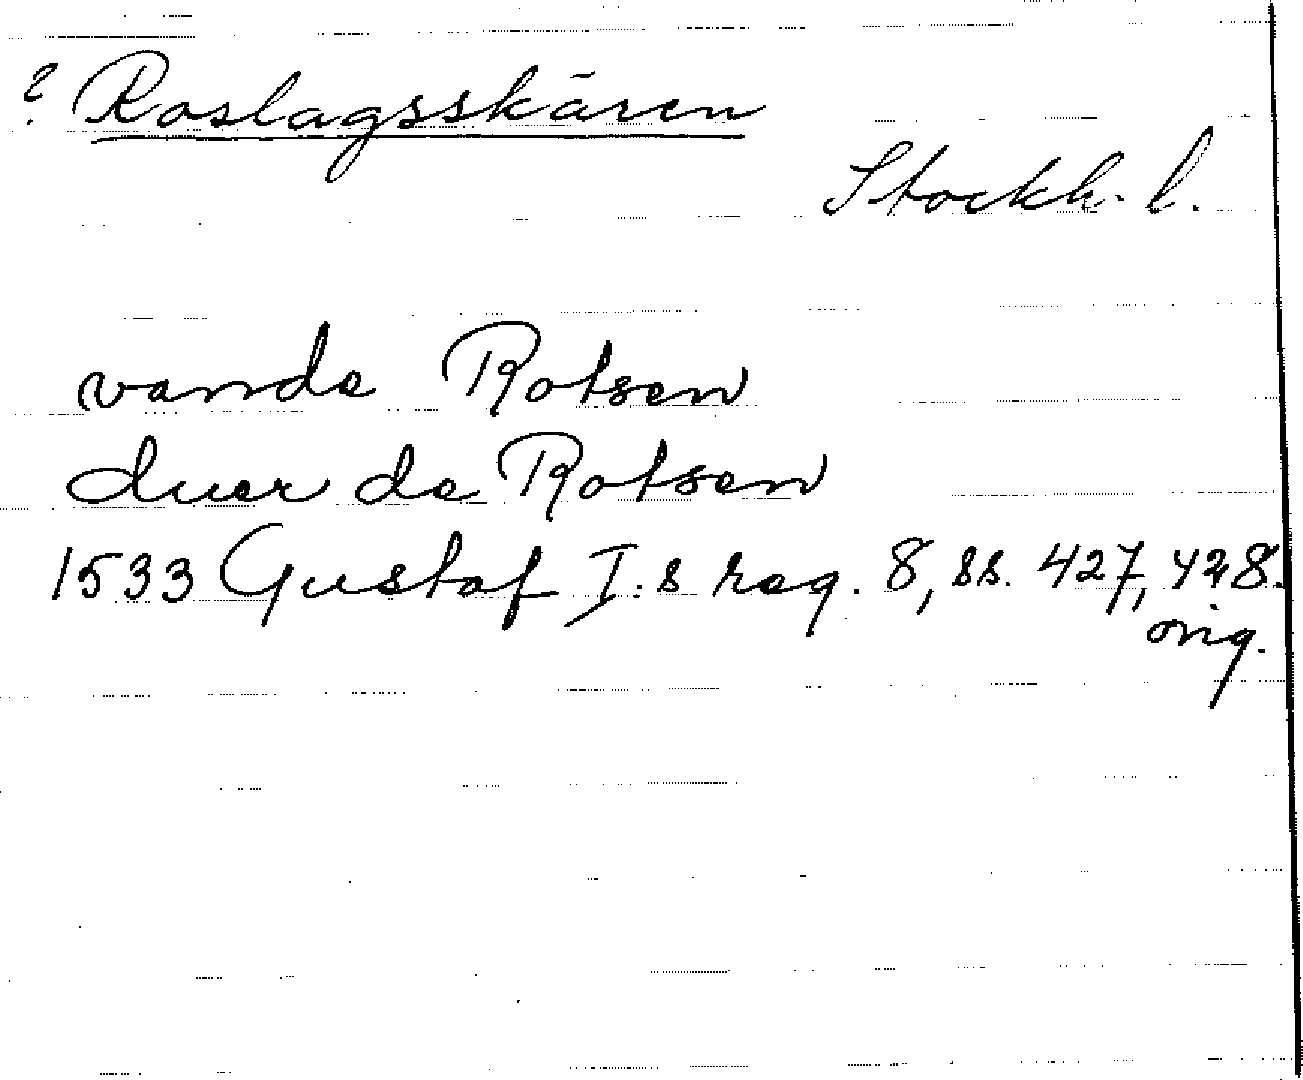 ? Roslagsskären
Stockh. l.
vande Rotsen
duer de Rotsen
1533 Gustaf I:s reg. 8, ss. 427, 428.
orig.